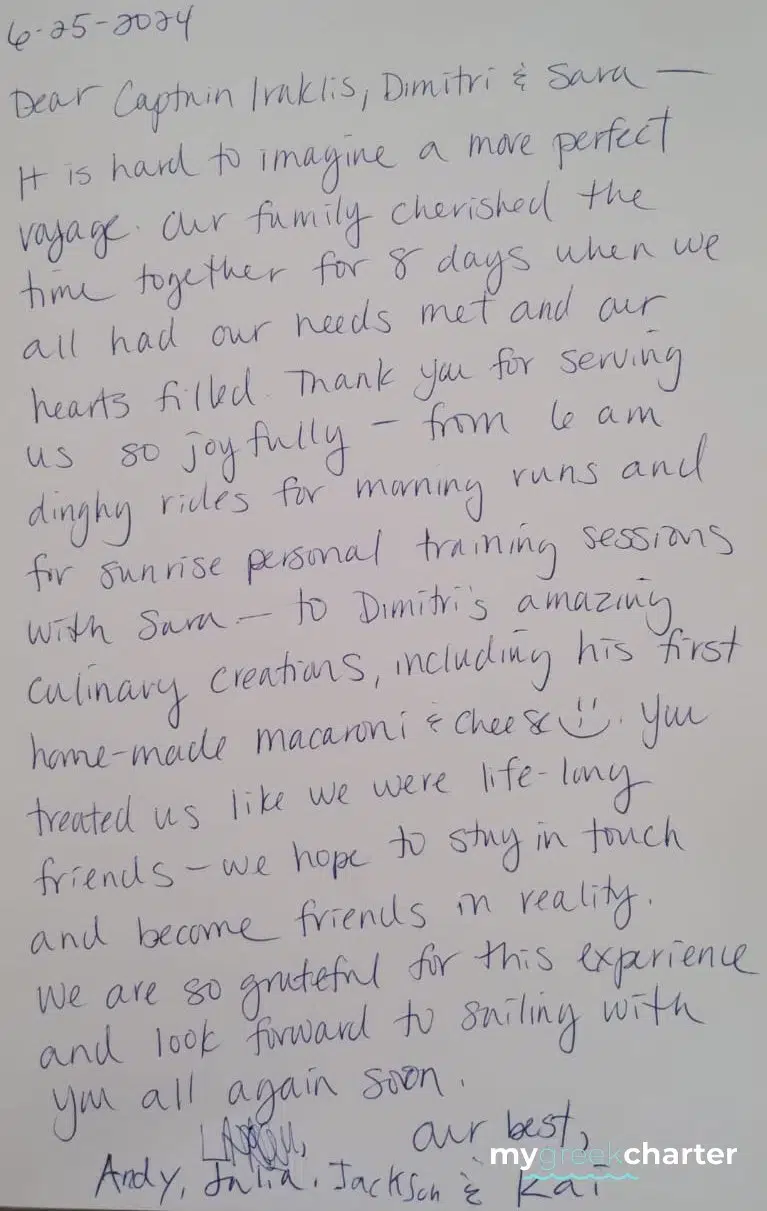 6-25-2024
Dear Captain Iraklis, Dimitri & Sara —
It is hard to imagine a more perfect
voyage. Our family cherished the
time together for 8 days when we
all had our needs met and our
hearts filled. Thank you for serving
us so joyfully – from 6 am
dinghy rides for morning runs and
for sunrise personal training sessions
with Sara — to Dimitri's amazing
culinary creations, including his first
home-made macaroni & cheese. You
treated us like we were life-long
friends – we hope to stay in touch
and become friends in reality.
We are so grateful for this experience
and look forward to sailing with
you all again soon.
Our best,
Andy, Julia, Jackson & Kai
mygreekcharter